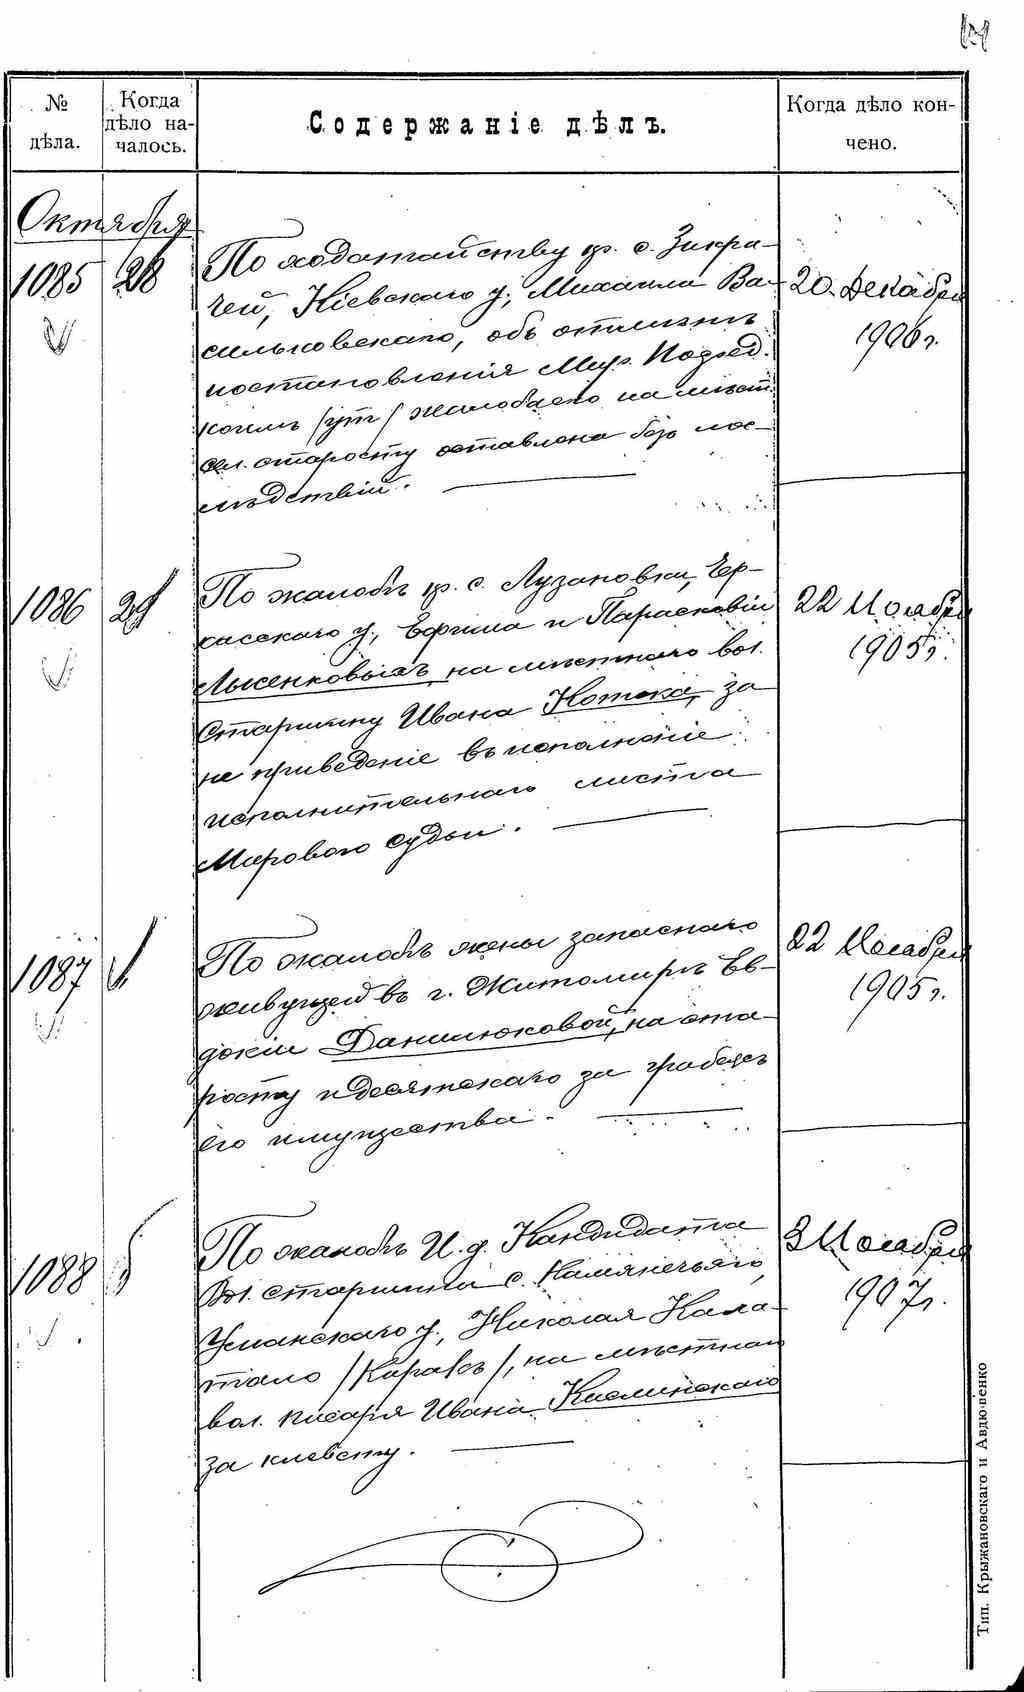 № дѣла.
Когда дѣло на-
чалось.
Содержаніе дѣлъ.
Когда дѣло кон-
чено.
Октября
1085
28
По ходатайству кр. с. Закри-
чей, Кіевскаго у., Михаила Ва-
сильковскаго, объ отмѣнѣ
постановленія Мир. Посред.
коимъ /ут/ жалоба его на мѣст.
сел. старосту оставлена безъ пос-
лѣдствій.
20 Декабря
1906 г.
1086
По жалобѣ кр. с. Лузановки, Чер-
касскаго у., Ефима и Парасковіи
Лысенковыхъ на мѣстнаго вол.
Старшину Ивана Котока, за
не приведеніе въ исполненіе
исполнительнаго листа
Мирового Судьи.
22 Ноября
1905 г.
1087
По жалобѣ жены запаснаго
живущей въ г. Житомирѣ Ев-
докіи Данилюковой, на ста-
росту и десятскаго за грабежъ
его имущества.
22 Ноября
1905 г.
1088
По жалобѣ И. д. Кандидата
Вол. старшины с. Камянечьяго,
Уманскаго у., Николая Кала-
тало /Каравъ/, на мѣстнаго
вол. писаря Ивана Кислинскаго
за клевету.
3 Ноября
1907 г.
Тип. Крыжановскаго и Авдюшенко